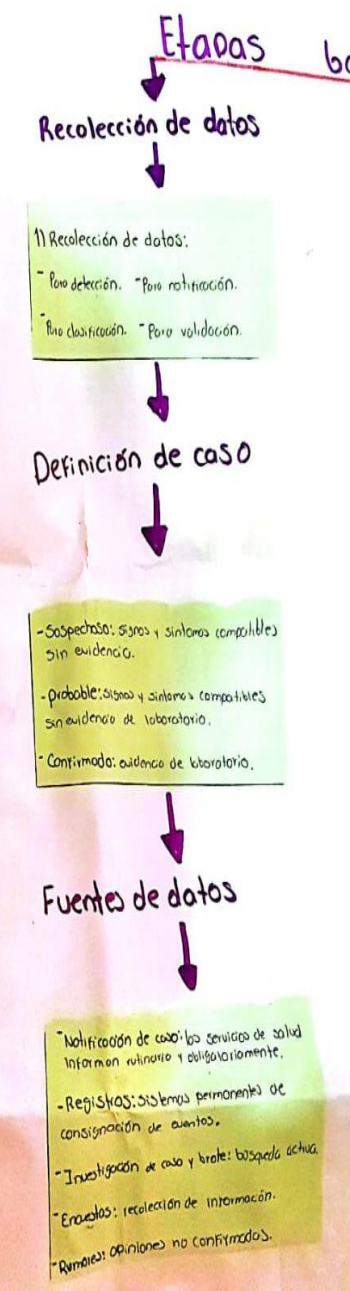 Etapas
Recolección de datos
1) Recolección de datos:
- Para detección. - Para notificación.
- Para clasificación. - Para validación.
Definición de caso
- Sospechoso: signos y sintomas compatibles
sin evidencia.
- probable: signos y sintomas compatibles
sin evidencia de laboratorio.
- Confirmado: evidencia de laboratorio.
Fuentes de datos
- Notificación de caso: los servicios de salud
informan rutinario y obligatoriamente.
- Registros: sistemas permanentes de
consignación de eventos.
- Investigación de caso y brote: busqueda activa.
- Encuestas: recolección de información.
- Rumores: opiniones no confirmadas.